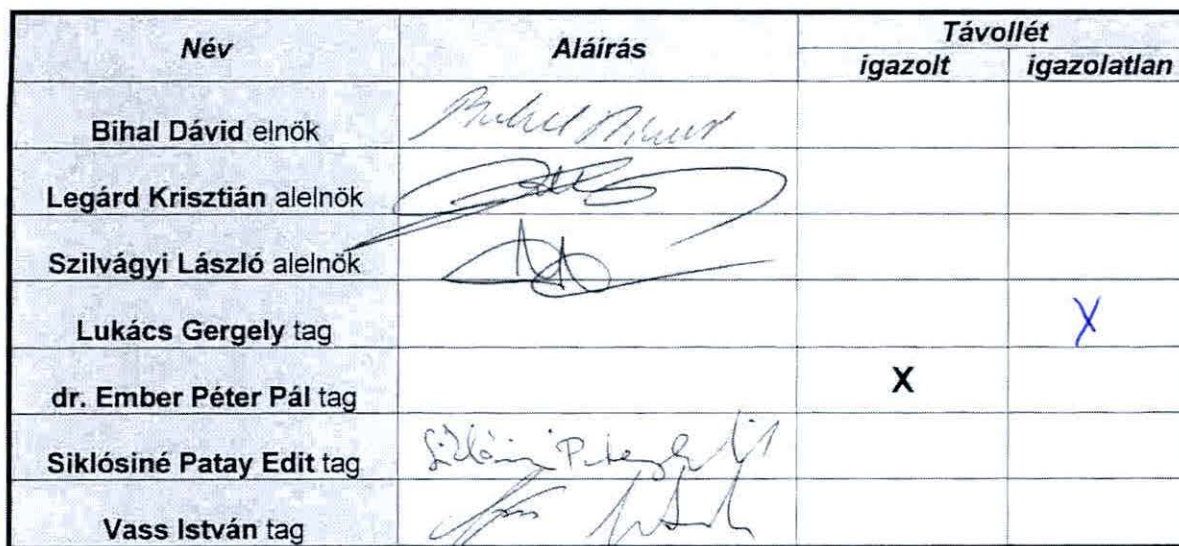 Név Aláírás Távollét
igazolt igazolatlan
Bihal Dávid elnök
Legárd Krisztián alelnök
Szilvágyi László alelnök
Lukács Gergely tag X
dr. Ember Péter Pál tag X
Siklósiné Patay Edit tag Siklósiné Patay Edit
Vass István tag